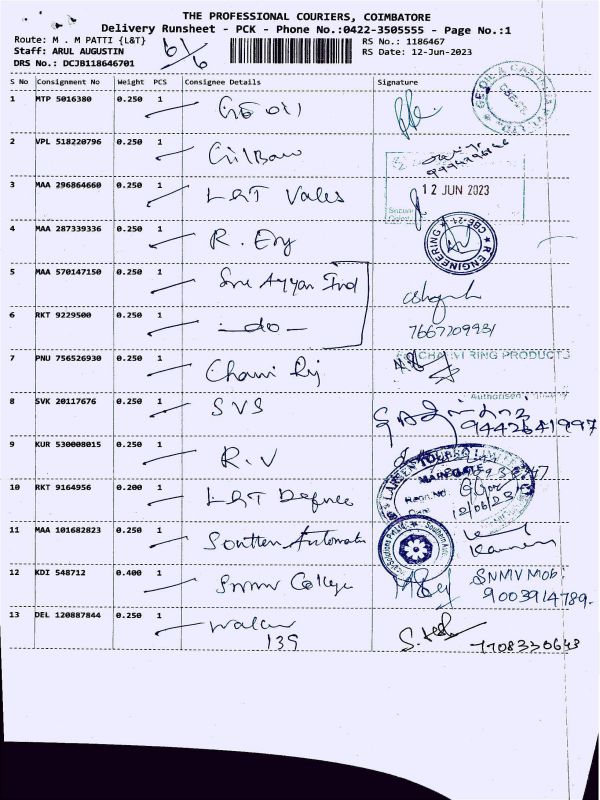 THE PROFESSIONAL COURIERS, COIMBATORE
Delivery Runsheet - PCK - Phone No.:0422-3505555 - Page No.:1
Route: M . M PATTI {L&T} 6/6 RS No.: 1186467
Staff: ARUL AUGUSTIN RS Date: 12-Jun-2023
DRS No.: DCJB118646701
S No Consignment No Weight PCS Consignee Details Signature
1 MTP 5016380 0.250 1
2 VPL 518220796 0.250 1
12 JUN 2023
3 MAA 296864660 0.250 1 L&T Vales
4 MAA 287339336 0.250 1 R. Eng
R ENGINEERING CBE-21
5 MAA 570147150 0.250 1 Sree Ayyan Ind
6 RKT 9229500 0.250 1 - do -
7667209931
7 PNU 756526930 0.250 1
RING PRODUCTS
Authorised
8 SVK 20117676 0.250 1 SVS
9442641997
9 KUR 530008015 0.250 1 R.V
LARSEN TOUBRO
MAIN GATE
10 RKT 9164956 0.200 1 L&T Defence
12/06/23
11 MAA 101682823 0.250 1 Southern Automati
12 KDI 548712 0.400 1 SNMV College SNMV Mobi:
9003914789.
13 DEL 120887844 0.250 1
139 7708330643